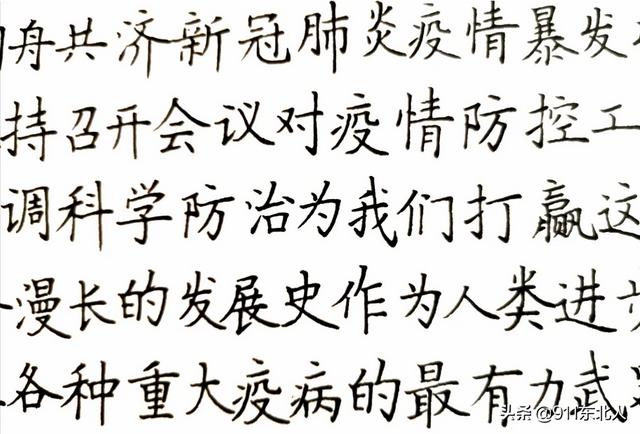 舟共济新冠肺炎疫情暴发
持召开会议对疫情防控工
调科学防治为我们打赢这
漫长的发展史作为人类进步
各种重大疫病的最有力武
头条 @911东北人